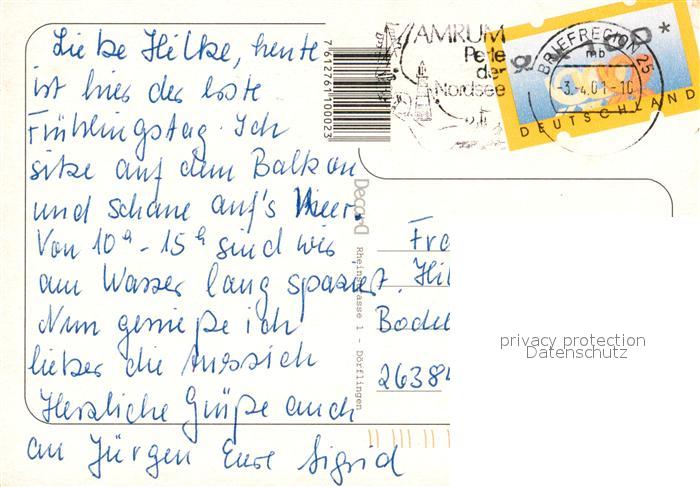 Liebe Hilke, heute
ist hier der erste
Frühlingstag. Ich
sitze auf dem Balkon
und schaue auf's Meer.
Von 10h - 15h sind wir
am Wasser lang spaziert.
Nun genieße ich
lieber die Aussich
Herzliche Grüße auch
an Jürgen Eure Sigrid
7612761100023
AMRUM
Perle
der
Nordsee
BRIEFREGION 25
mb
-3.-4.01-10
100*
DEUTSCHLAND
Decard
Rheinstrasse 1 - Dörflingen
Fra
Hil
Bodel
26384
privacy protection
Datenschutz